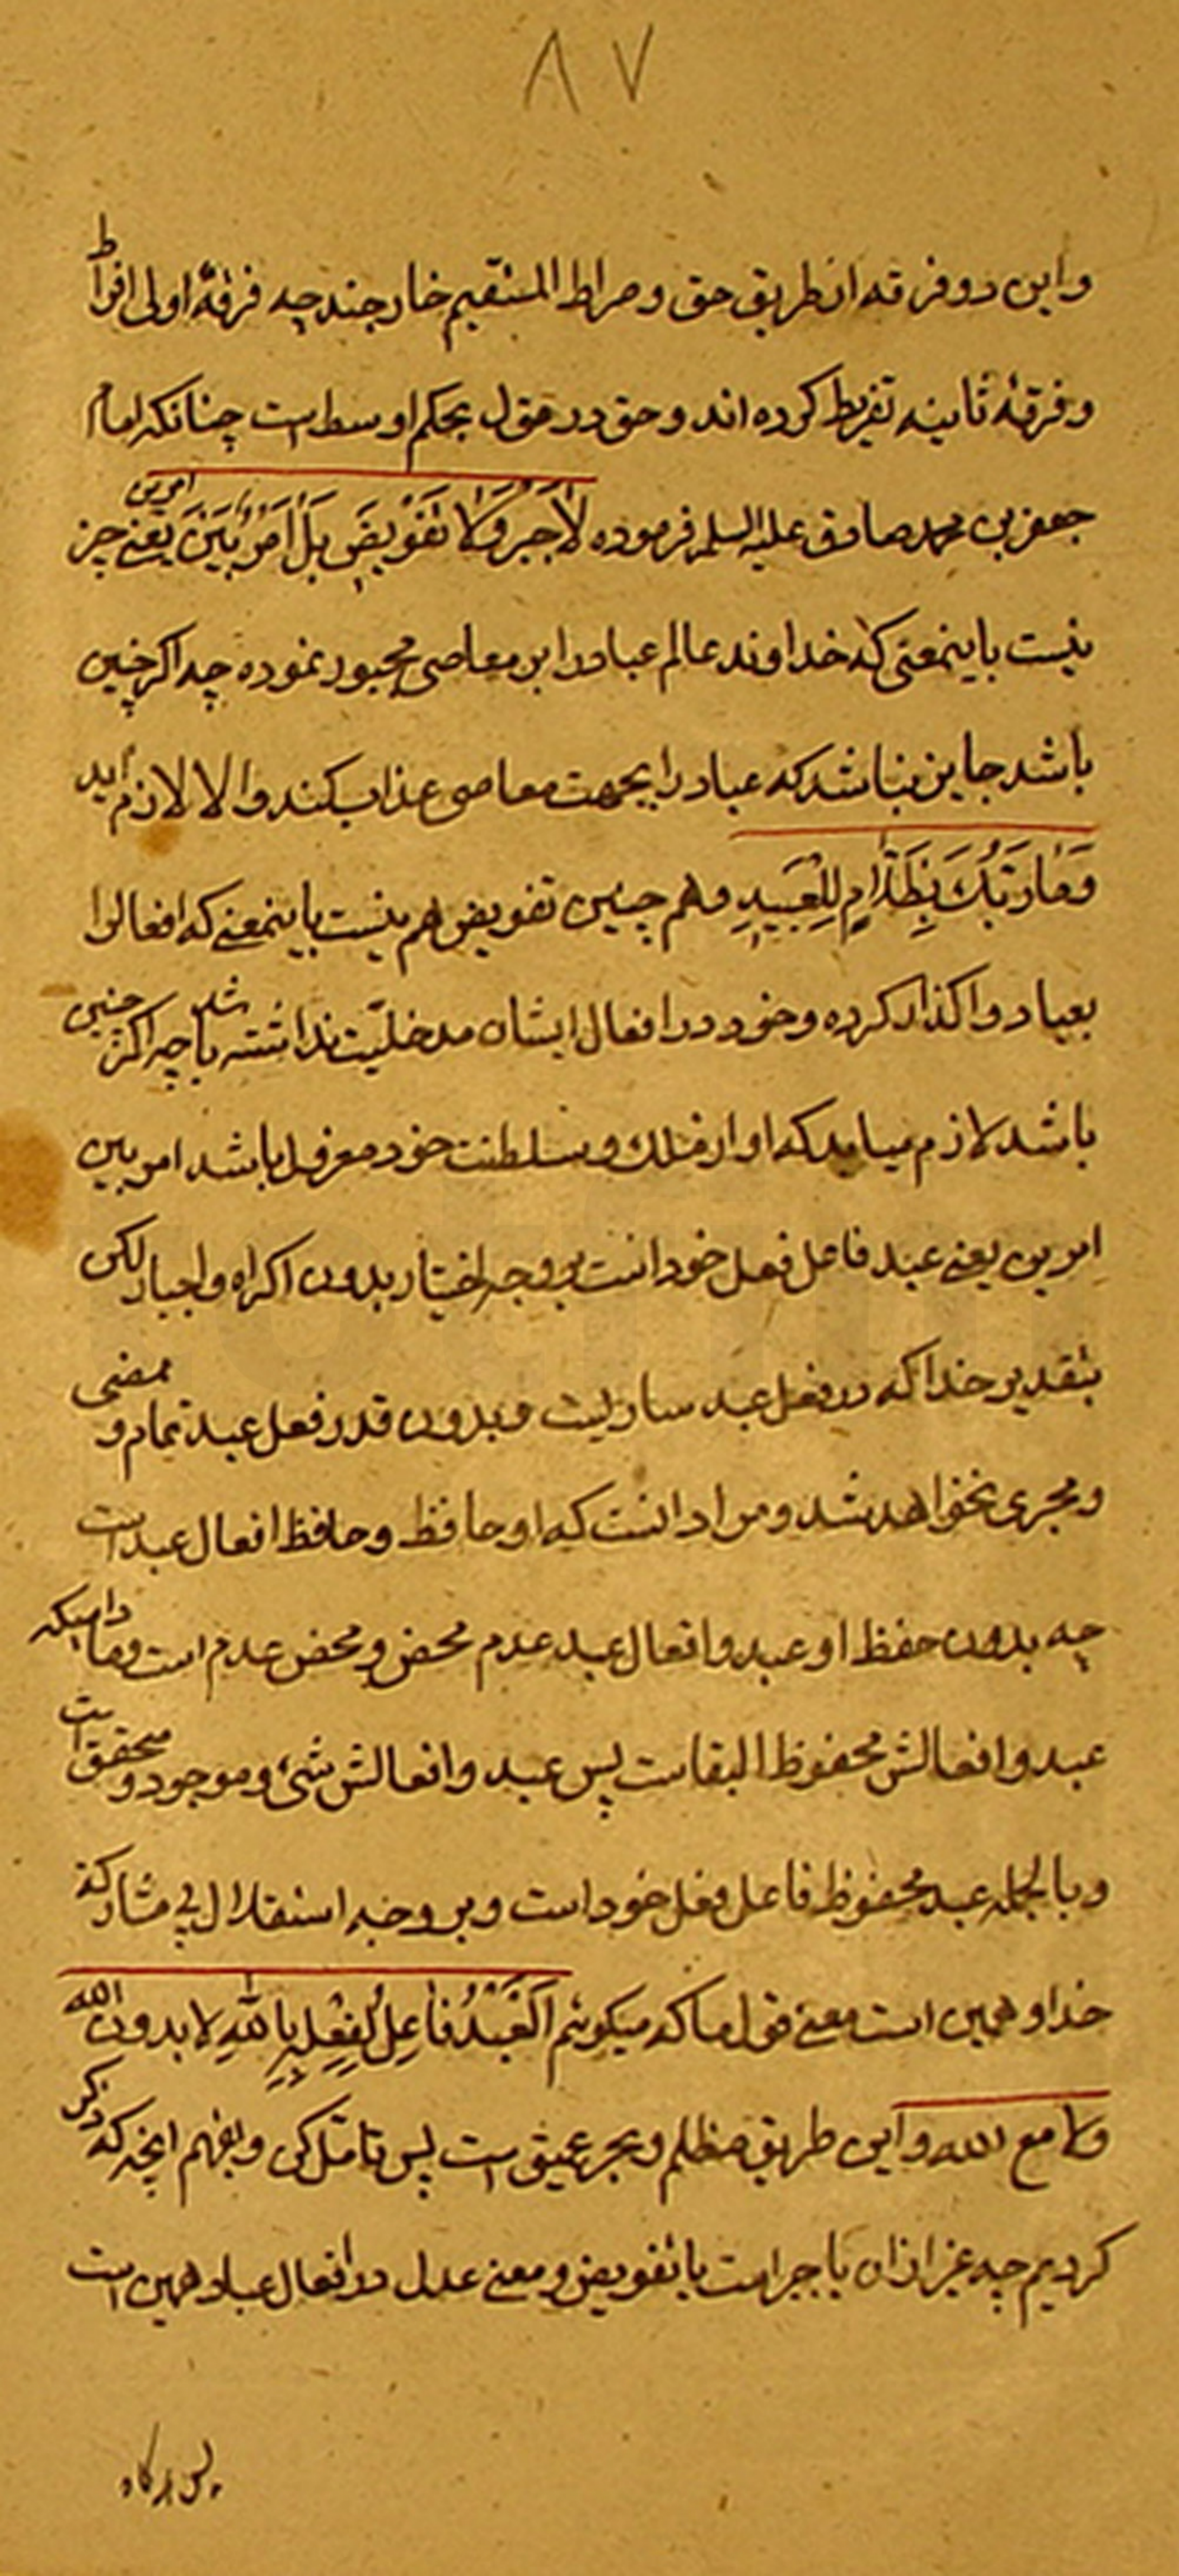 ۸۷
واین دو فرقه از طریق حق و صراط المستقیم خارجند چه فرقهٔ اولی افراط
و فرقهٔ ثانیه تفریط کرده اند و حق در حق اول بحکم اوسط است چنانکه امام
جعفر بن محمد صادق علیه السلم فرموده لَا جَبرَ وَلَا تَفْویضَ بَلْ اَمْرٌ بَیْنَ امرین یعنی جبر
نیست باینمعنی که خداوند عالم عباد را بر معاصی مجبور نموده چه اکر چنین
باشد جایز نباشد که عباد را بجهت معاصی عذاب کند والا لازم اید
وَمَا رَبُّکَ بِظَلّامٍ لِلْعَبیدِ و هم چنین تفویض هم نیست باینمعنی که افعال را
بعباد واکذار کرده و خود در افعال ایشان مدخلیّت نداشته باشد چه اکر چنین
باشد لازم میاید که او از ملک و سلطنت خود معزول باشد امر بین
امرین یعنی عبد فاعل فعل خود است بر وجه اختیار بدون اکراه و اجبار لکن
بتقدیر خدا که در فعل عبد ساریست و بدون قدر فعل عبد تمام و ممضی
و مجری نخواهد شد و مراد انست که او حافظ وحافظ افعال عبد است
چه بدون حفظ او عبد و افعال عبد عدم محض و محض عدم است و مادامیکه
عبد و افعالش محفوظ البقاست پس عبد و افعالش شیء و موجود و محقق است
و بالجمله عبد محفوظ فاعل فعل خود است و بر وجه استقلال بی مشارکة
خدا و همین است معنی قول ما که میکوئیم اَلْعَبْدُ فاعِلٌ لِفِعْلِهِ بِاللهِ لا بدون الله
ولا مع الله و این طریق مظلم و بحر عمیق است پس تامّل کن و بفهم انچه که ذکر
کردیم چه غیر از ان یا جبر است یا تفویض و معنی عدل در افعال عباد همین است
پس هرکاه